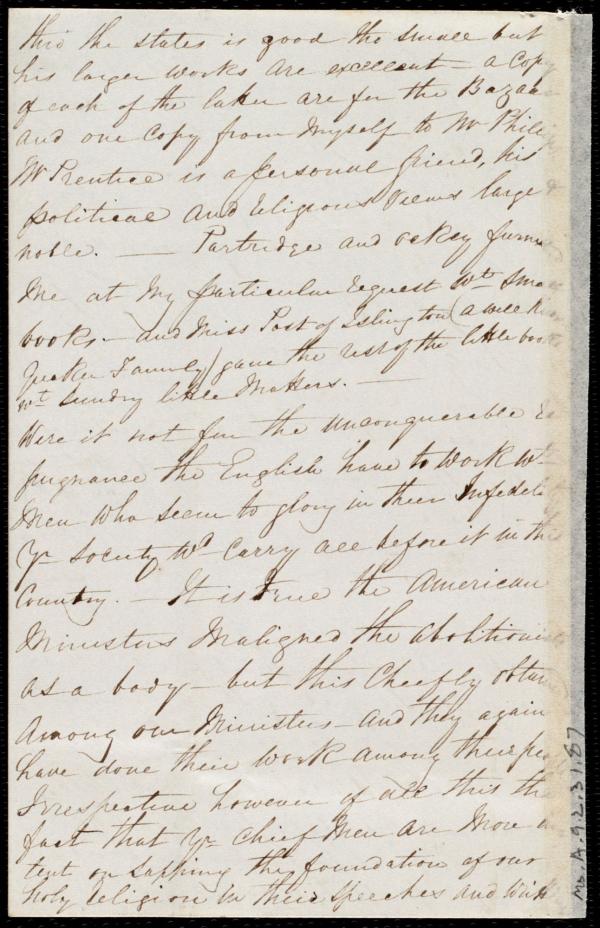 thro the states is good tho small but
his larger works are excellent – a Copy
of each of the latter are for the Bazaar
and one Copy from myself to Mr Philip
Mr Prentice is a personal friend, his
political and religious views large &
noble. — Partridge and Oakey furni
me at my particular request wth sma
books – and Miss Post of Islington (a well kn
Quaker Family) gave the rest of the little books
wt sundry little Matters. —
Were it not for the unconquerable Re
pugnance the English have to work wth
Men who seem to glory in their Infideli
Yr Society wd carry all before it in this
Country. – It is true the American
Ministers Maligned the abolitionists
as a body – but this Cheefly obtain
among our Ministers – and they again
have done their work among their peo
Irrespective however of all this the
fact that Yr chief Men are More in
tent on sapping the foundation of our
holy religion in their speeches and writ
Ms. A. 9. 2. 31. 87